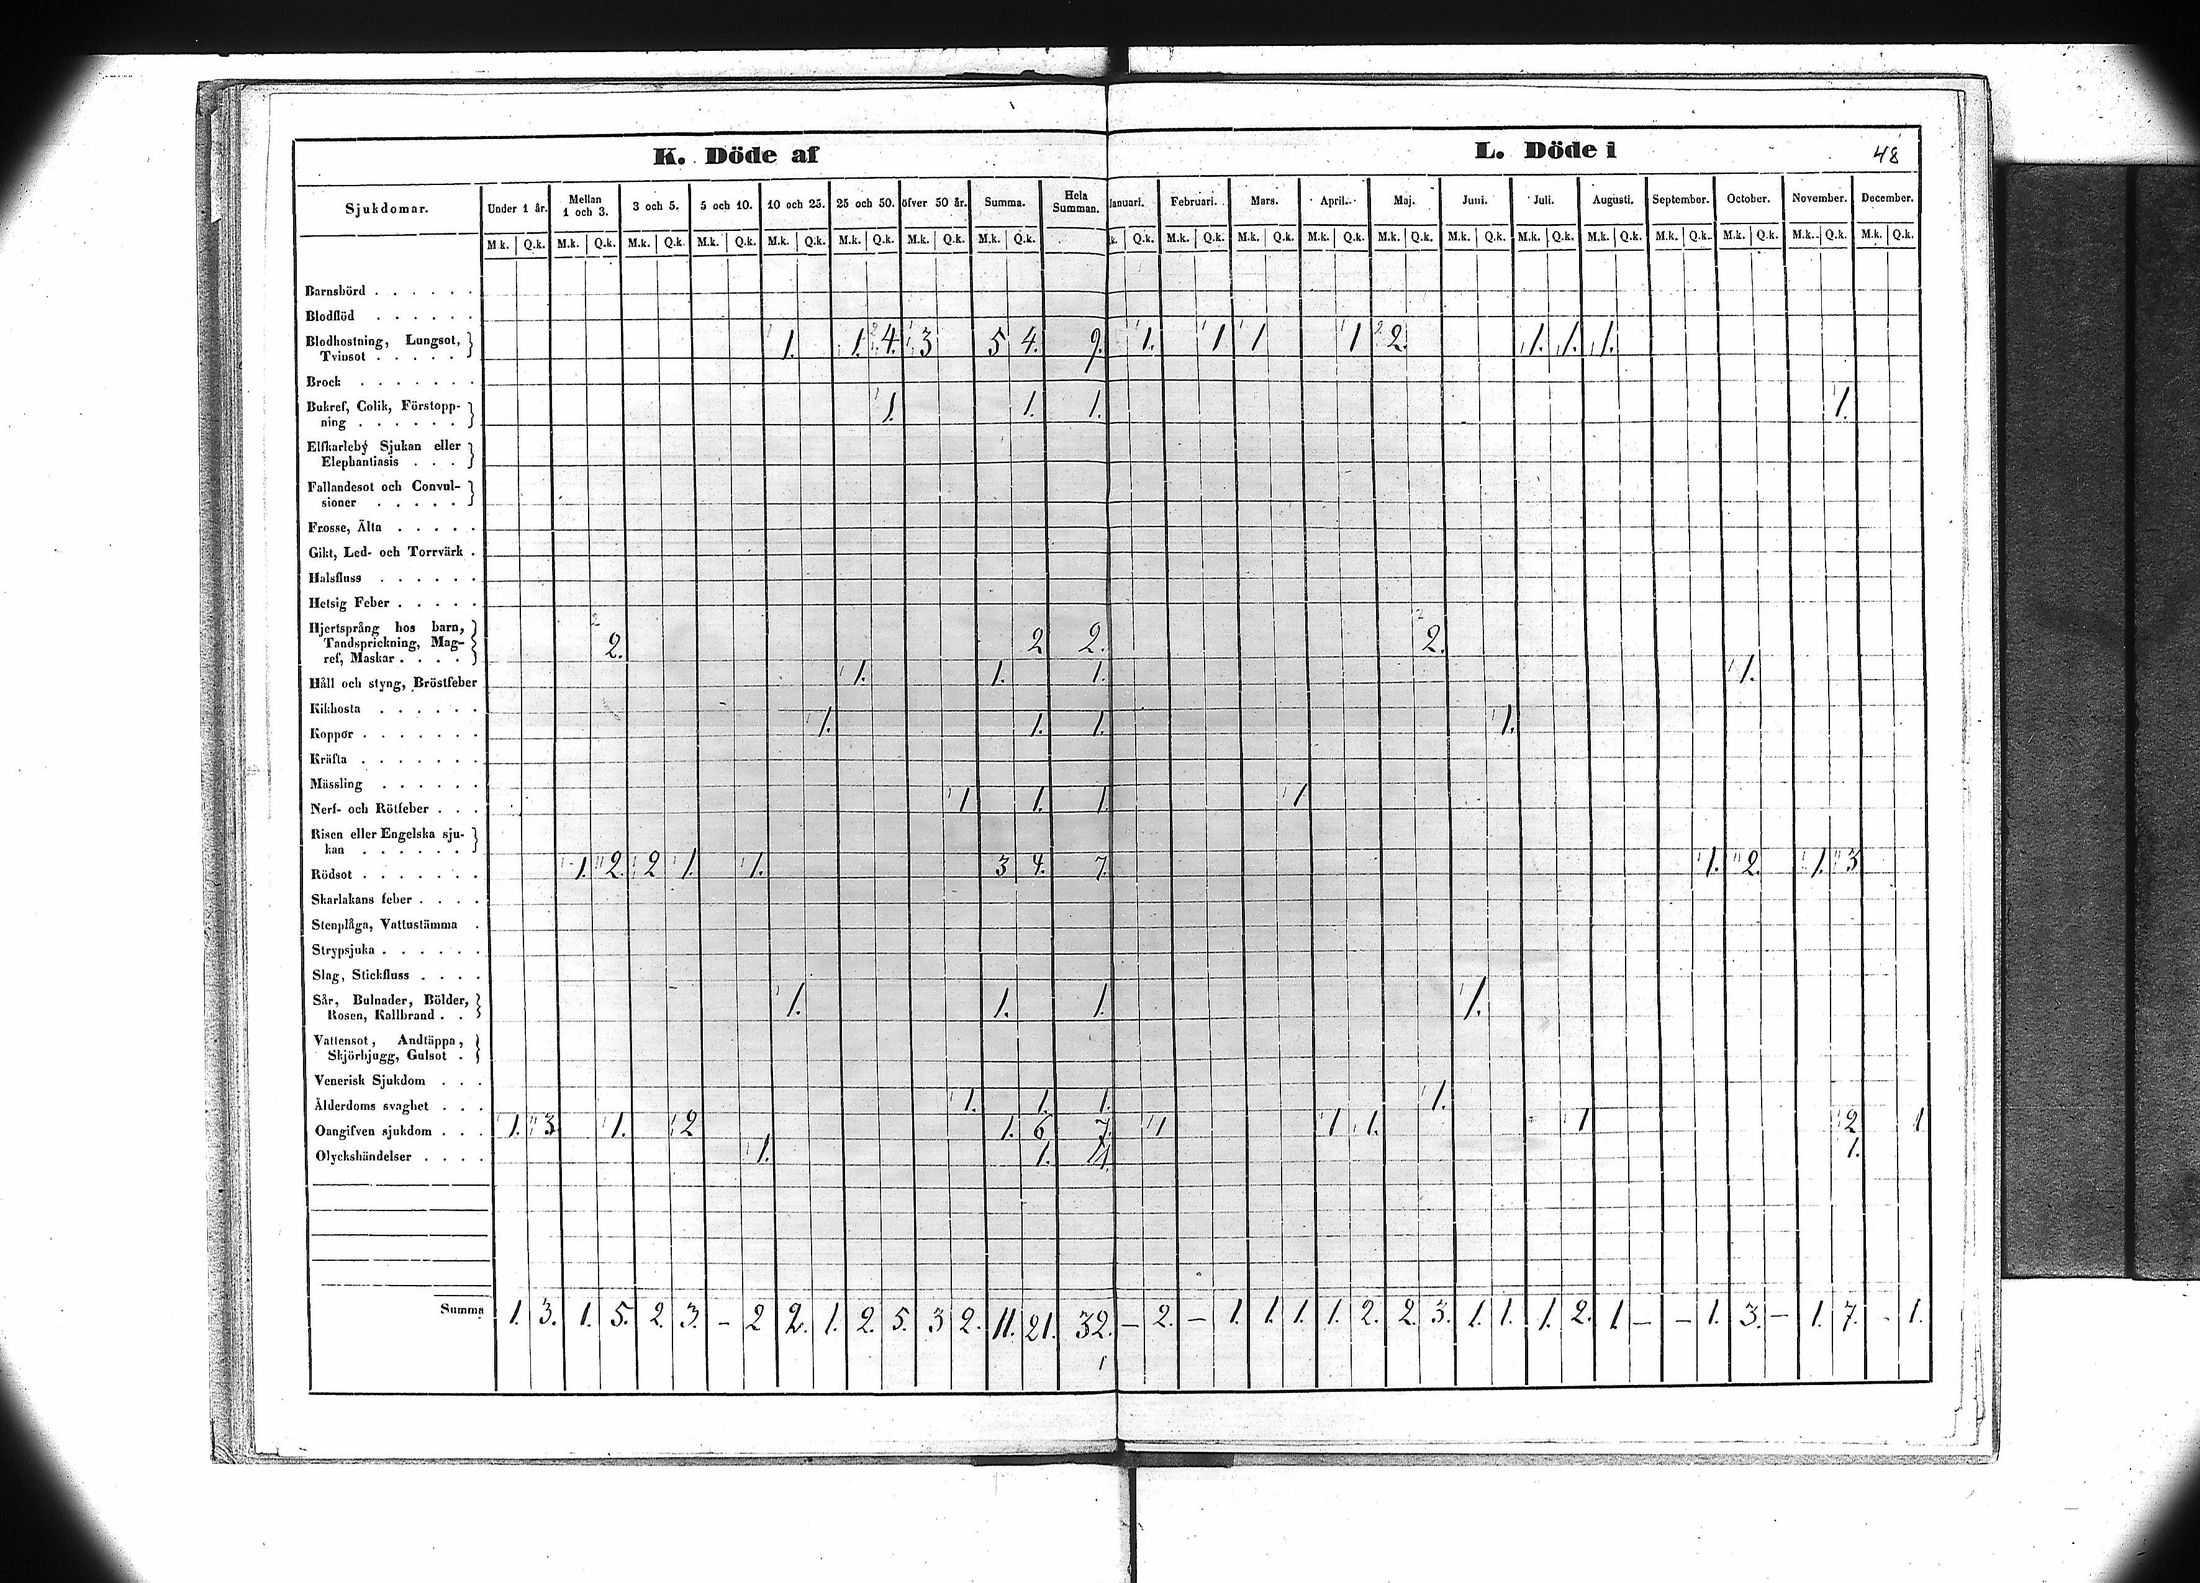 K. Döde af L. Döde i 48
Sjukdomar. Under 1 år. Mellan 1 och 3. 3 och 5. 5 och 10. 10 och 25. 25 och 50. öfver 50 år. Summa. Hela Summan. Januari. Februari. Mars. April. Maj. Juni. Juli. Augusti. September. October. November. December.
M.k. Q.k. M.k. Q.k. M.k. Q.k. M.k. Q.k. M.k. Q.k. M.k. Q.k. M.k. Q.k. M.k. Q.k. k. Q.k. M.k. Q.k. M.k. Q.k. M.k. Q.k. M.k. Q.k. M.k. Q.k. M.k. Q.k. M.k. Q.k. M.k. Q.k. M.k. Q.k. M.k. Q.k. M.k. Q.k.
Barnsbörd . . . . . .
Blodflöd . . . . . .
Blodhostning, Lungsot,
Tvinsot . . . . . 1. 1. 4. 3 5 4. 9. 1. 1 1 1 2. 1. 1. 1.
Brock . . . . . . .
Bukref, Colik, Förstopp-
ning . . . . . . 1. 1. 1. 1.
Elfkarleby Sjukan eller
Elephantiasis . . .
Fallandesot och Convul-
sioner . . . . .
Frosse, Älta . . . . .
Gikt, Led- och Torrvärk .
Halsfluss . . . . . .
Hetsig Feber . . . . .
Hjertsprång hos barn,
Tandsprickning, Mag-
ref, Maskar . . . . 2. 2 2. 2.
Håll och styng, Bröstfeber 1. 1. 1. 1.
Kikhosta . . . . . .
Koppor . . . . . . . 1. 1. 1. 1.
Kräfta . . . . . . .
Mässling . . . . . .
Nerf- och Rötfeber . . . 1 1. 1. 1
Risen eller Engelska sju-
kan . . . . . .
Rödsot . . . . . . . 1. 2. 2 1. 1. 3 4. 7. 1. 2. 1. 3
Skarlakans feber . . . .
Stenplåga, Vattustämma .
Strypsjuka . . . . . .
Slag, Stickfluss . . . .
Sår, Bulnader, Bölder,
Rosen, Kallbrand . . 1. 1. 1. 1.
Vattensot, Andtäppa,
Skjörbjugg, Gulsot .
Venerisk Sjukdom . . .
Ålderdoms svaghet . . . 1. 1. 1. 1.
Oangifven sjukdom . . . 1. 3 1. 2 1. 6 7. 1 1 1. 1 2 1
Olyckshändelser . . . . 1. 1. 1.
Summa 1. 3. 1. 5. 2. 3. – 2 2. 1. 2. 5. 3 2. 11. 21. 32. – 2. – 1. 1. 1. 1. 2. 2. 3. 1. 1. 1. 2. 1. – – 1. 3. – 1. 7. - 1.